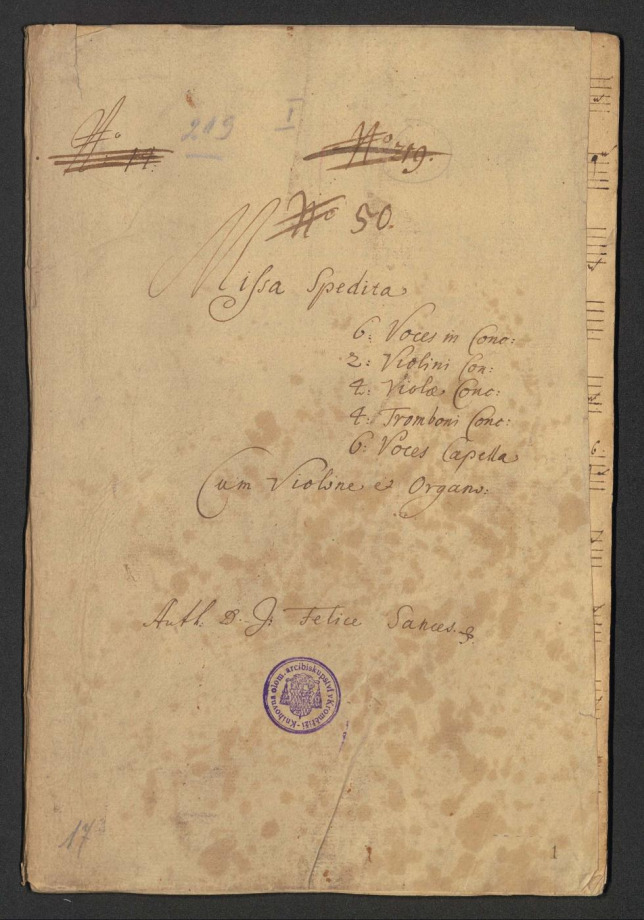 No 14.
219 I
No 219.
No 50.
Missa Spedita
6: Voces in Conc:
2: Violini Con:
4: Violæ Conc:
4: Tromboni Conc:
6: Voces Capella
Cum Violone e Organo:
Auth: D. J: Felice Sances.
Knihovna olom. arcibiskupství v Kroměříži
17
1
6.